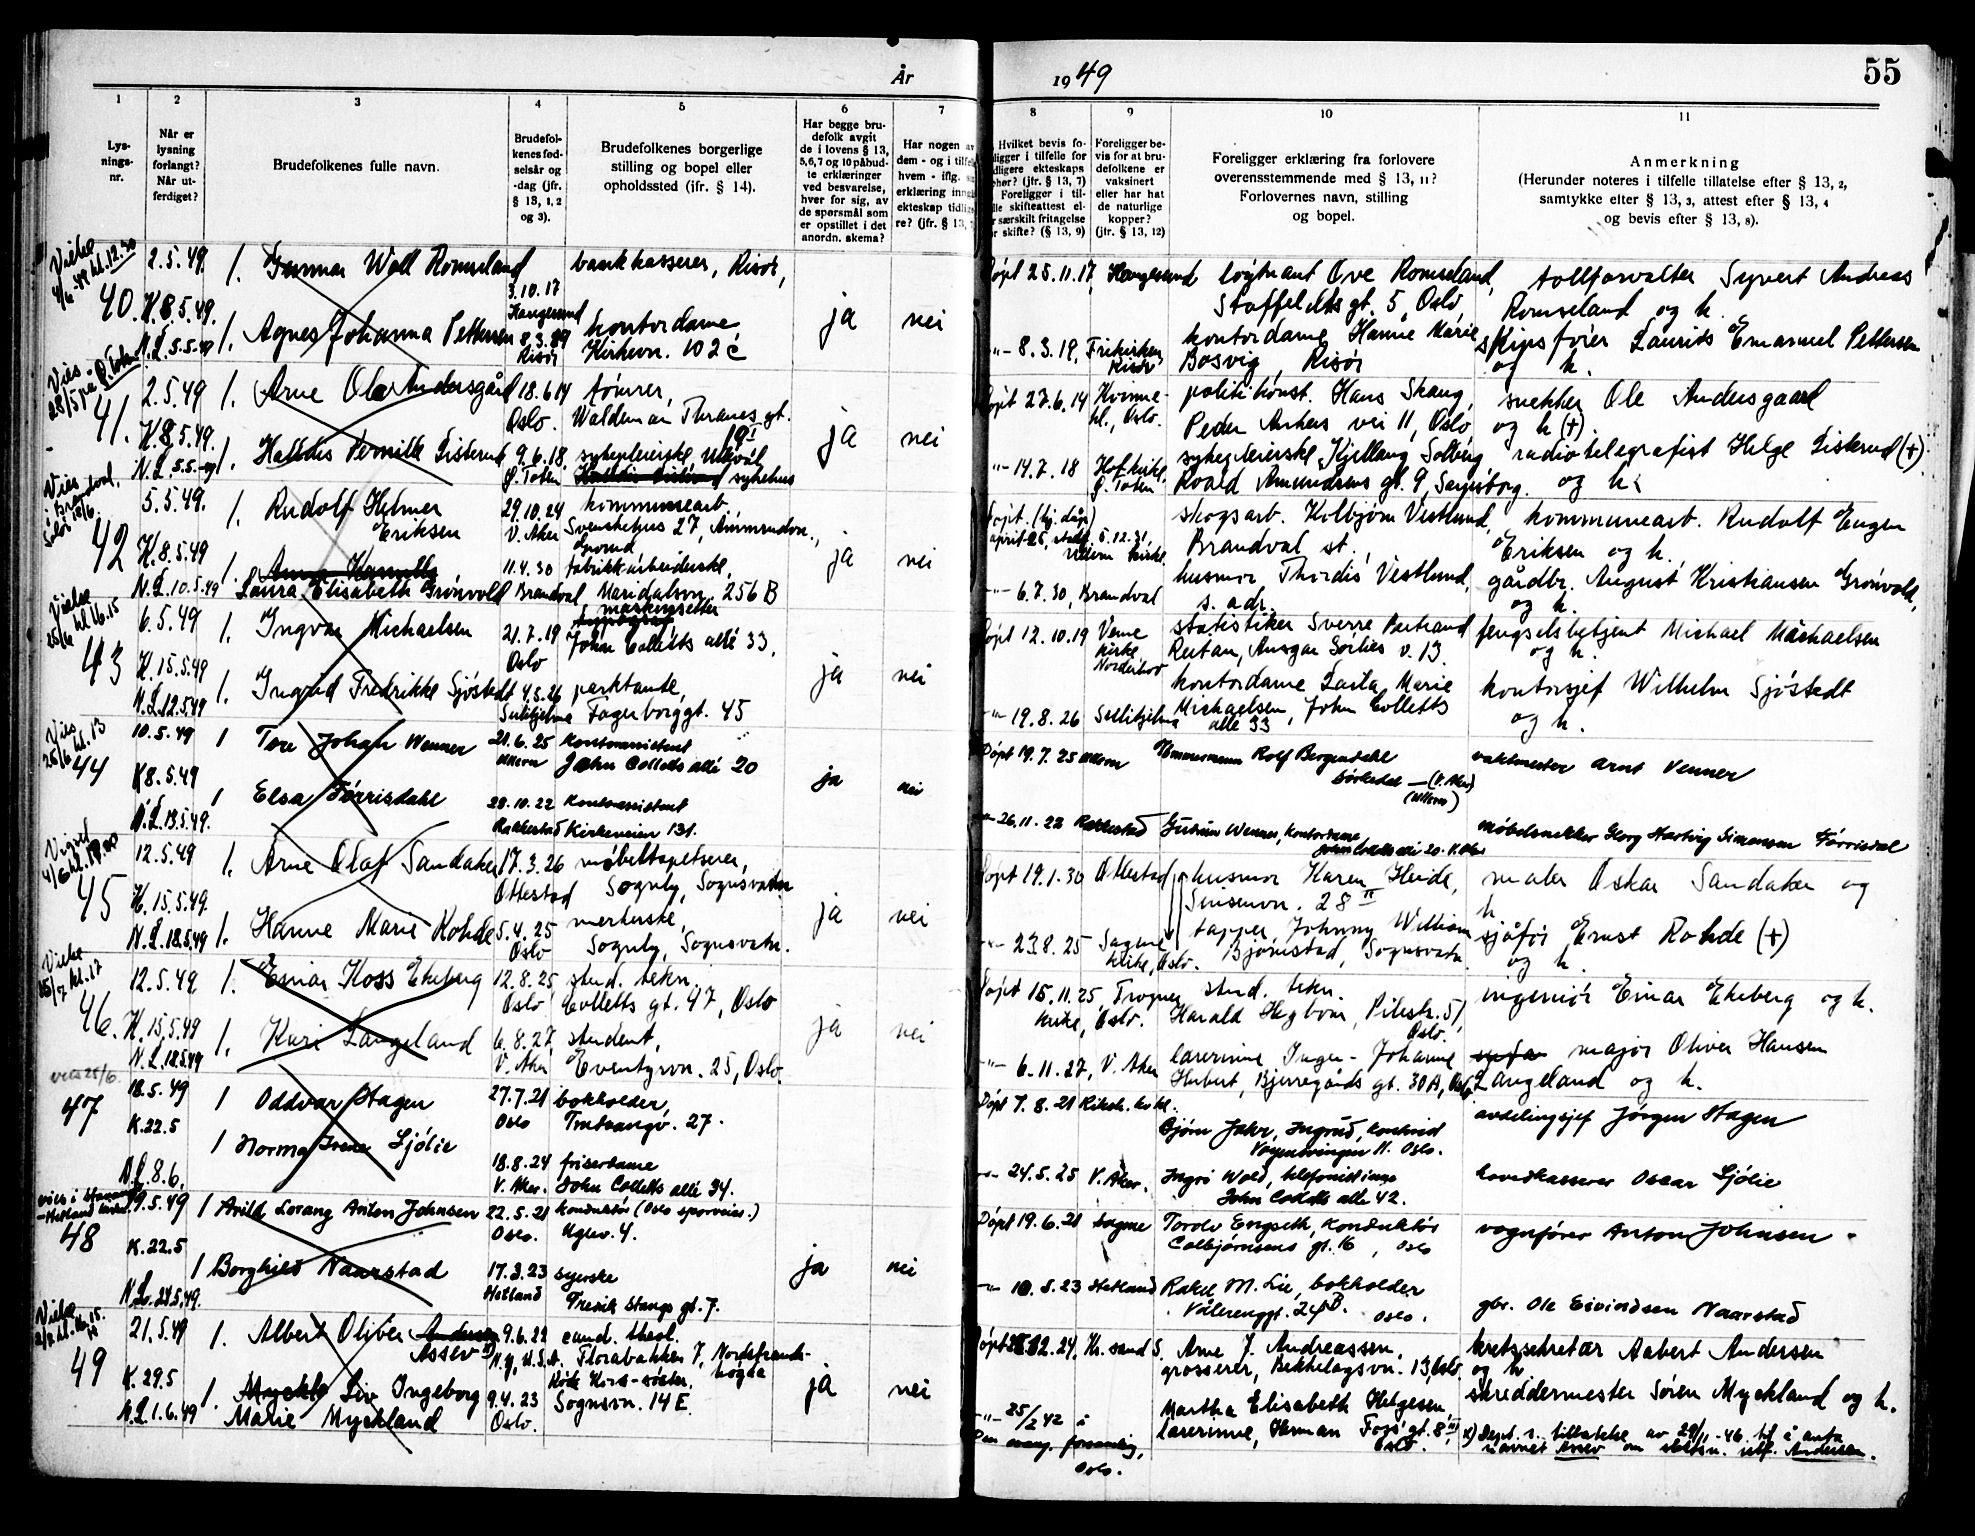 År 1949
55
1 2 3 4 5 6 7 8 9 10 11
Lys-
nings-
nr.
Når er
lysning
forlangt?
Når ut-
ferdiget?
Brudefolkenes fulle navn.
Brudefol-
kenes fød-
selsår og
-dag (jfr.
§ 13, 1, 2
og 3).
Brudefolkenes borgerlige
stilling og bopel eller
opholdssted (jfr. § 14).
Har begge bru-
defolk avgit
de i lovens § 13,
5,6,7 og 10 påbud-
te erklæringer
ved besvarelse,
hver for sig, av
de spørsmål som
er opstillet i det
anordn. skema?
Har nogen av
dem - og i tilfel
hvem - iflg.
erklæring inng
ekteskap tidlig
re? (jfr. § 13,
Hvilket bevis fo-
ligger i tilfelle for
dligere ekteskaps
phør? (jfr. § 13, 7)
Foreligger i til-
lle skifteattest el-
r særskilt fritagelse
r skifte? (§ 13, 9)
Foreligger be-
vis for at bru-
defolkene er
vaksinert
eller har hat
de naturlige
kopper?
(jfr. § 13, 12)
Foreligger erklæring fra forlovere
overensstemmende med § 13, 11?
Forlovernes navn, stilling
og bopel.
Anmerkning
(Herunder noteres i tilfelle tillatelse efter § 13, 2,
samtykke efter § 13, 3, attest efter § 13, 4
og bevis efter § 13, 8).
Vielse
4/6 49 kl. 12.30
40.
2.5.49. 1. Gunnar Wall Romseland 3.10.17 Haugesund bankkasserer, Risør,
K. 8.5.49. 1. Agnes Johanna Pettersen 8.3.19 Risør kontordame Kirkevn. 102 c ja nei
N.L. 5.5.49
Døpt 25.11.17, Haugesund løytnant Ove Romseland, tollforvalter Syvert Andreas
Stoffeldts gt. 5, Oslo Romseland og h.
-"- 8.3.19, Frikirken Risør kontordame Hanne Marie skipsfører Laurits Emanuel Pettersen
Bosvig, Risør og h.
Vies
28/5 på Ø. Toten
41.
2.5.49 1. Arne Ole Andersgård 18.6.14 Oslo. tømrer, Waldemar Thranes gt. 19 I
K. 8.5.49. 1. Halldis Pernille Listerud 9.6.18. Ø. Toten sykepleierske Ullevål sykehus ja nei
N.L. 5.5.-49
Døpt 27.6.14 Kvinne-kl., Oslo. politikonst. Hans Skaug, snekker Ole Andersgaard
Peder Ankers vei 11, Oslo og h (+).
-"- 14.7.18 Hof kirke, Ø. Toten sykepleierske Kjellaug Solberg radiotelegrafist Helge Listerud (+)
Roald Amundsens gt. 9, Sarpsborg. og h.
Vies
i Brandval,
Solør 18/6.
42
5.5.49. 1. Rudolf Helmer Eriksen 29.10.24 V. Aker kommunearb. Svenskehus 27, Ammerudvn., Grorud
K. 8.5.49 1. Laura Elisabeth Grønvold 11.4.30 Brandval fabrikkarbeiderske, Maridalsvn. 256 B ja nei
N.L. 10.5.49
skogsarb. Kolbjørn Vestlund, kommunearb. Rudolf Eugen
Brandval st. Eriksen og h.
-"- 6.7.30, Brandval husmor, Thordis Vestlund, gårdbr. August Kristiansen Grønvold,
s. adr. og h.
Vielse
25/6 kl. 16.15
43
6.5.49 1. Ingvar Michaelsen 21.7.19 Oslo maskinsetter John Colletts allé 33,
K. 15.5.49 1. Ingrid Fredrikke Sjøstedt 4.3.26 Sulitjelma parktante, Fagerborggt. 45 ja nei
N.L. 12.5.49
Døpt 12.10.19 Veme kirke Norderhov statistiker Sverre Bertrand fengselsbetjent Michael Michaelsen
Reitan, Ansgar Sørlies v. 13. og h.
-"- 19.8.26 Sulitjelma kontordame Laila Marie kontorsjef Wilhelm Sjøstedt
Michaelsen, John Colletts allé 33 og h.
Vies
25/6 kl. 13
44
10.5.49 1 Tore Johan Wenner 21.6.25 Ullern Kontorassistent John Colletts allé 20
K 8.5.49 1 Elsa Tørrisdahl 28.10.22 Rakkestad kontorassistent Kirkeveien 131. ja nei
N.L. 13.5.49.
Døpt 19.7.25 Ullern Tømmermann Rolf Bergendahl vaktmester Arnt Venner
-"- 26.11.22 Rakkestad Gudrun Wenner, kontordame møbelsnekker Georg Hartvig Simonsen Tørrisdal
45
12.5.49 1. Arne Olaf Sandaker 17.3.26 Ottestad møbeltapetserer, Sogneby, Sognsvatn
K. 15.5.49. 1. Hanne Marie Rohde 5.4.25 Oslo Sogneby, Sognsvatn. ja nei
N.L. 18.5.49
Døpt 19.1.30 Ottestad husmor Karen Heide, maler Oskar Sandaker og
Sinsenvn. 28 II h.
-"- 23.8.25 Sagene kirke, Oslo. tapper, Johnny William sjåfør Ernst Rohde (+)
Bjørnstad, Sognsvatn. og h.
Vielse
kl. 17
46.
12.5.49 1. Einar Koss Ekeberg 12.8.25 Oslo stud. tekn. Colletts gt. 47, Oslo
K. 15.5.49 1. Kari Langeland 6.8.27, V. Aker student, Eventyrvn. 25, Oslo. ja nei
N.L. 18.5.49
Døpt 15.11.25, Frogner kirke, Oslo. stud. tekn. ingeniør Einar Ekeberg og h.
Harald Hegbom, Pilestr. 51, Oslo.
-"- 6.11.27, V. Aker lærerinne, Inger-Johanne major Oliver Hansen
Herbert, Bjerregårds gt. 30A, Oslo Langeland og h.
vies 25/6.
47
18.5.49 1 Oddvar Hagen 27.7.21 Oslo bokholder, Trudvangv. 27.
K. 22.5 1 Norma Irene Ljølie 18.8.24 V. Aker. friserdame John Colletts allé 34.
N.L. 8.6.
Døpt 7.8.21 Riksh. avdelingsjef Jørgen Hagen
-"- 24.5.25 V. Aker. Ingri Wold, telefonistinne hovedkasserer Oscar Ljølie
John Colletts alle 42.
48
19.5.49 1 Arild Lorang Anton Johnsen 22.5.21 Oslo. konduktør (Oslo sporveier.) Uglev. 4.
K. 22.5 1 Borghild Naarstad 17.3.23 Hetland syerske Fredrik Stangs gt. 7. ja nei
N.L. 24.5.49.
Døpt 19.6.21 Sagene Torolv Engseth, konduktør vognfører Anton Johnsen
Colbjørnsens gt. 16, Oslo
-"- 10.5.23 Hetland Rakel M. Lie, bokholder gbr. Ole Eivindsen Naarstad
Vålerenggt. 24 B. Oslo.
49
21.5.49 1. Albert Oliver Andersen Assev x) 9.6.22 N.Y., U.S.A. cand. theol. Florabakken 7, Nordstrands-høgda
K. 29.5 1. Liv Ingeborg Marie Myckland 9.4.23 Oslo. Sognsvn. 14 E. ja nei
N.L. 1.6.49
Kr. sand S. Arne J. Andreassen, kretssekretær Aabert Andersen
grosserer, Bekkelagsvn. 13, Oslo. og h
-"- 25/2 42 i Den evang. forsamling, Oslo. Martha Elisabeth Helgesen, skreddermester Søren Myckland og h.
lærerinne, Herman Foss' gt. 8 III, Oslo.
x) Dept. s. tillatelse av 29/11-46 til å anta
navnet Assev som slektsn. istf. Andersen.